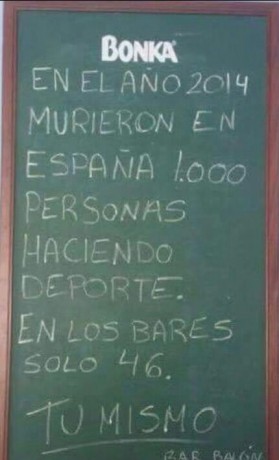 BONKA
EN EL AÑO 2014
MURIERON EN
ESPAÑA 1.000
PERSONAS
HACIENDO
DEPORTE.
EN LOS BARES
SOLO 46.
TU MISMO
BAR